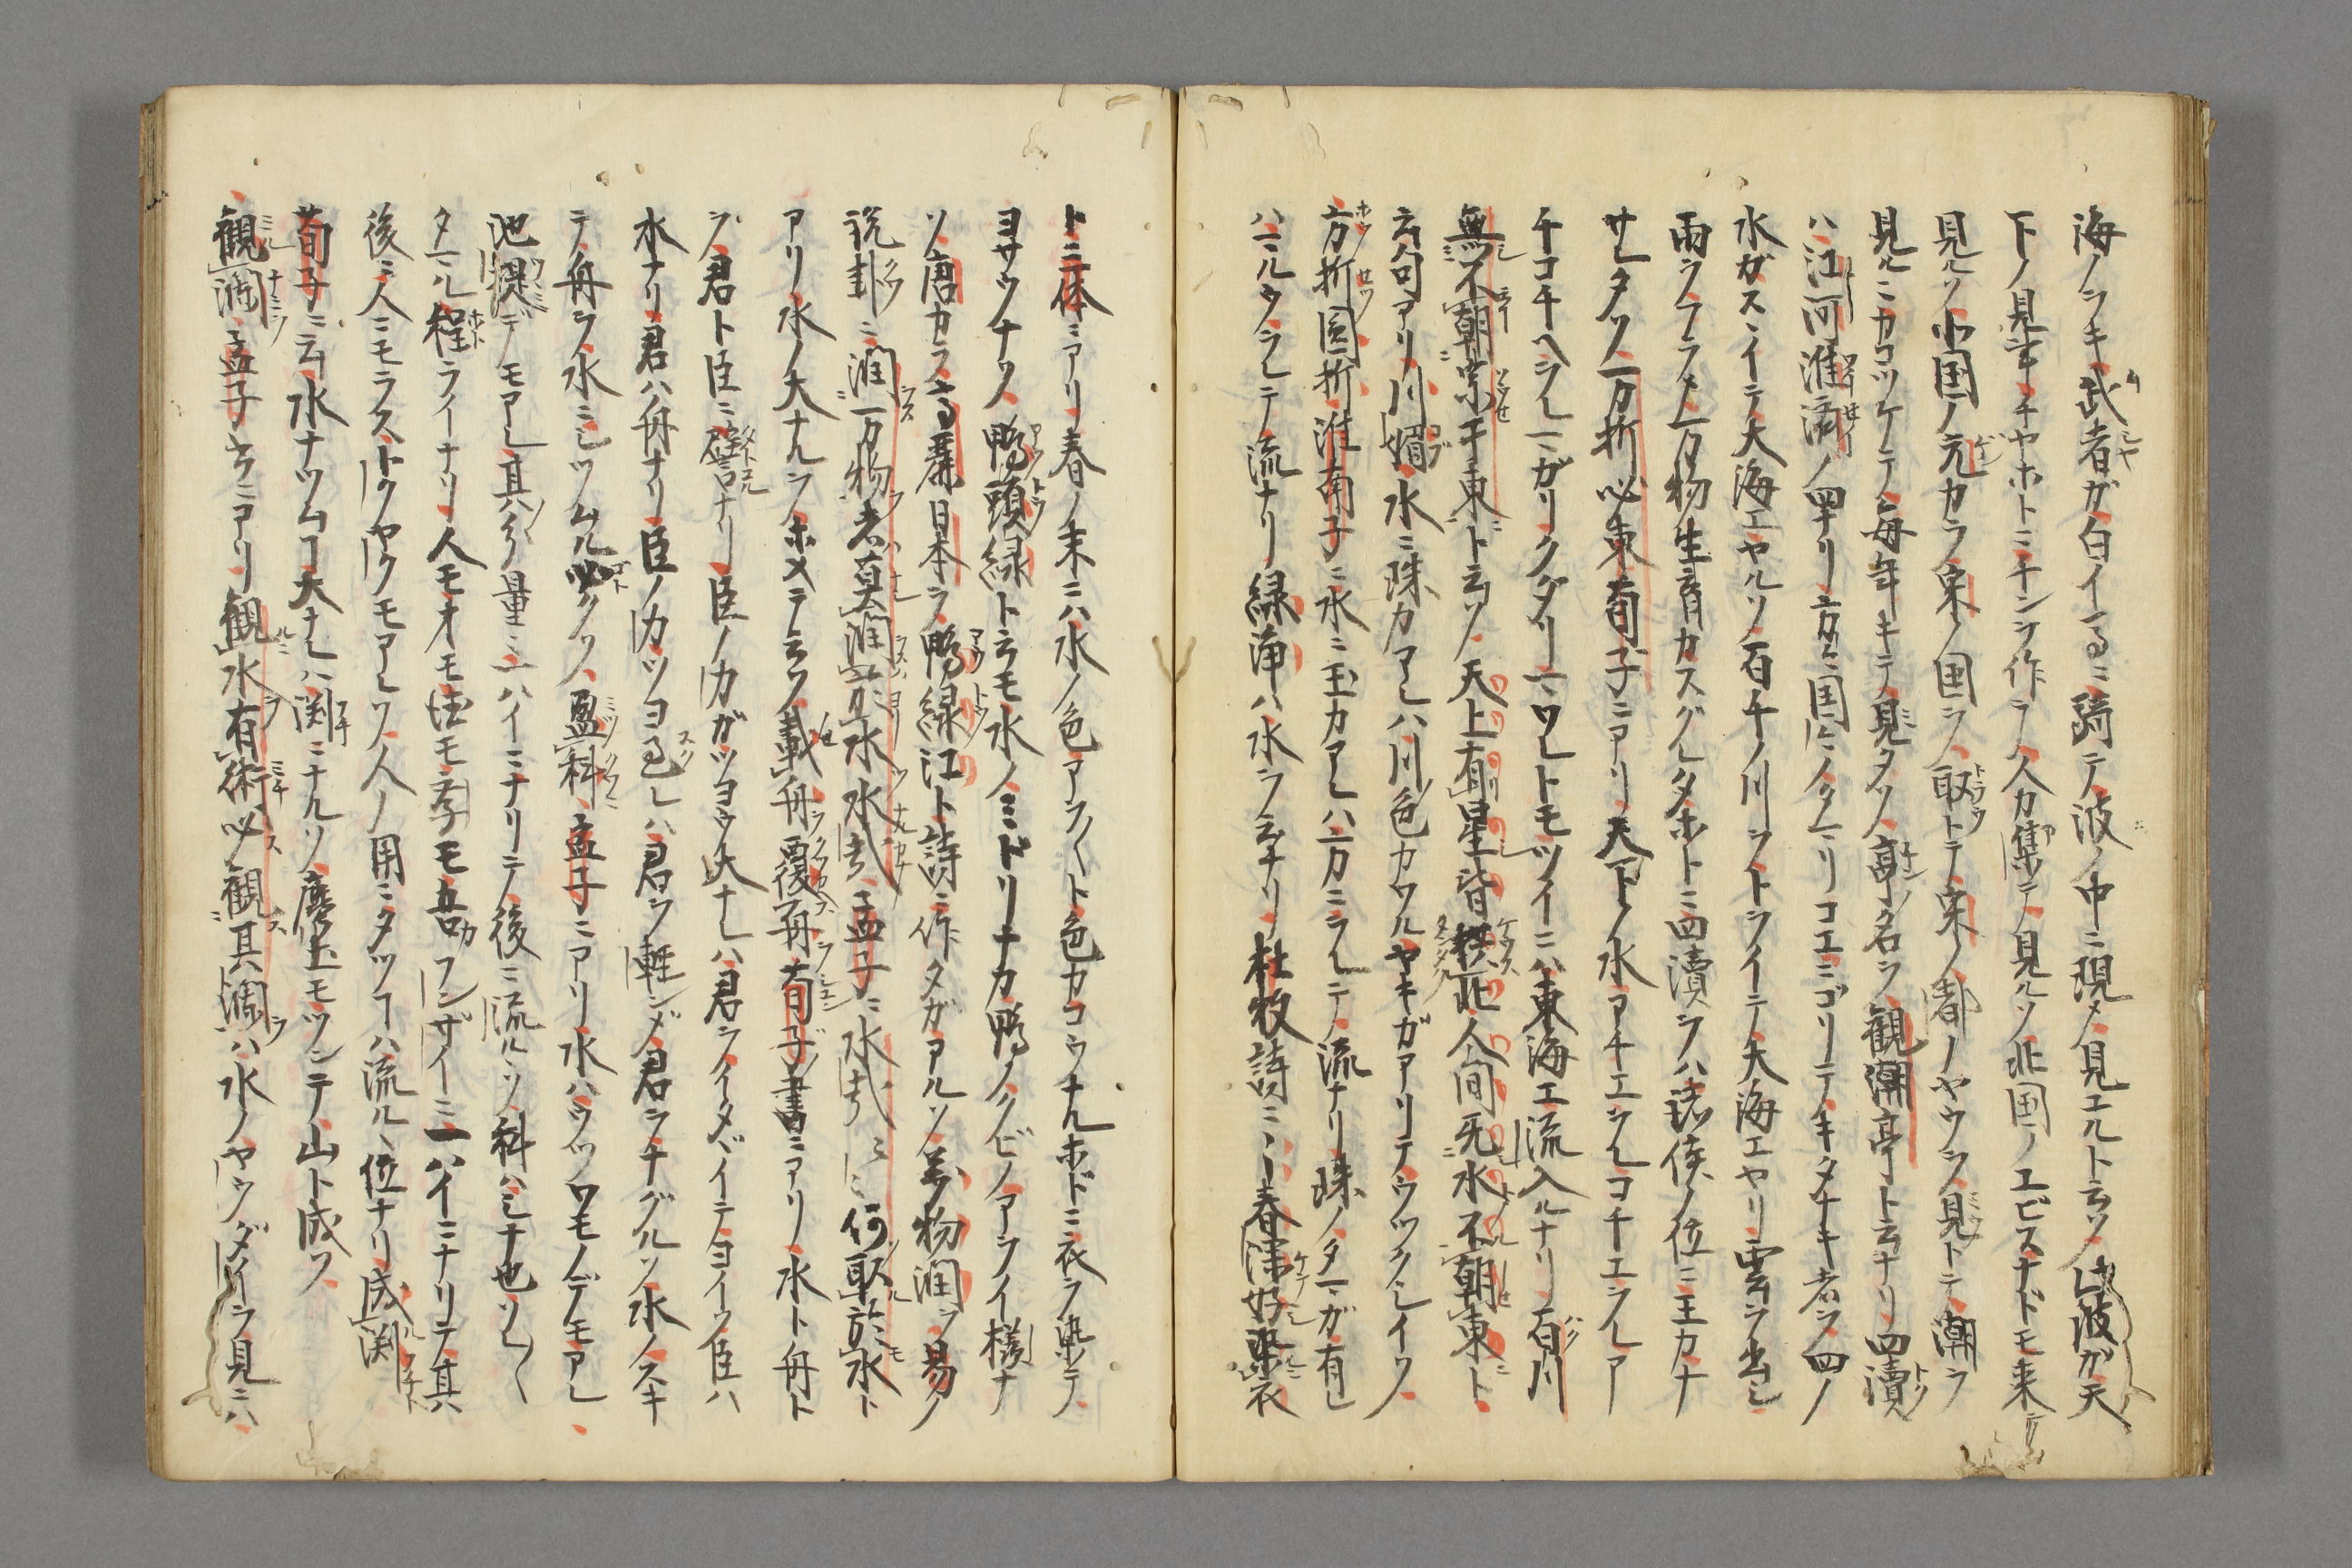 海ノツキ武者ガ白イ馬ニ騎テ波ノ中ニ現メ見エルト云ソ此波ガ天
下ノ見事チヤホトニチンヲ作ラ人カ集テ見ルソ北国ノエビスナドモ来テ
見ルソ北国ノ元カラ宋ノ国ヲ取トテ宋ノ都ノヤウヲ見トテ潮ヲ
見ルニカコツケテ毎年キテ見タソ亭名ヲ観潮亭ト云ナリ四瀆
ハ江河淮済ノ四ナリ方々国々ノタマリコエニゴリテキタナキ者ヲ四ノ
水ガスイテ大海エヤルソ石千ノ川ヲトヲイテ大海エヤリ雲ヲ出し
雨ヲフラメ万物生育カスグレタホトニ四瀆ヲハ諸侯ノ位ニ王カナ
サレタソ万折必東荀子ニアリ天下ノ水アチエシレコチエシレア
チコチヘシレマガリクダリマワレトモツイニハ東海エ流入ルナリ百川
無不朝宗于東ト云ソ天上有星皆拱北人間无水不朝東ト
云句アリ川媚水ニ珠カアレハ川色カワルヤキガアリテウツクレイソ
方折圓折淮南子ニ水ニ玉カアレハ方ニヲレテ流ナリ珠ノタマガ有レ
ハマルウヲレテ流ナリ緑浄ハ水ヲ云ナリ杜牧詩ニ春渾好染衣
ト三体ニアリ春ノ末ニハ水ノ色アヲ〱ト色カコウナルホドニ衣ヲ染テ
ヨサウナソ鴨頭緑ト云モ水ノミドリナカ鴨ノクビノアヲイ様ナ
ソ唐カラ高麗日本ヲ鴨緑江ト詩ニ作タガアルソ万物潤ヲ易ノ
説卦ニ潤万物者莫潤於水水哉孟子ニ水哉〻〻何取於水ト
アリ水ノ大ナルヲホメテ云ソ載舟覆舟荀子書ニアリ水ト舟ト
ヲ君ト臣ニ譬ナリ臣ノカガツヨウ大ナレハ君ヲイタヾイテヨイソ臣ハ
水ナリ君ハ舟ナリ臣ノカツヨ過レハ君ヲ軽ンメ君ヲナグルソ水ノスキ
テノ舟ヲ水ニシツムル如クソ盈科孟子ニアリ水ハウツワモノデモアレ
池堤デモアレ其分量ニ一ハイニナリテ後ニ流ルソ科ハミナ也ソレ〱
タマル程ライナリ人モ才モ徳モ孝モ吾フンザイニ一ハイニナリテ其
後ニ人ニモラストクヤクモアレソ人ノ用ニタツフハ流ル丶位ナリ成渕
荀子ニ云水ナツムコ大ナレハ渕ニナルソ塵土モツンテ山ト成ソ
観瀾孟子ヤラニアリ観水有術必観其瀾ハ水ノヤウダイヲ見ニハ